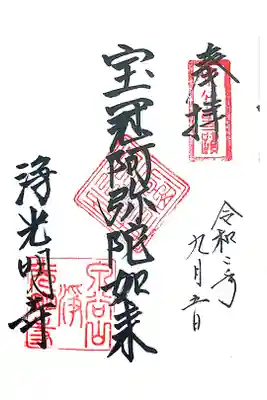 奉拝
令和二年
九月五日
宝冠阿弥陀如来
浄光明寺
泉谷山
浄